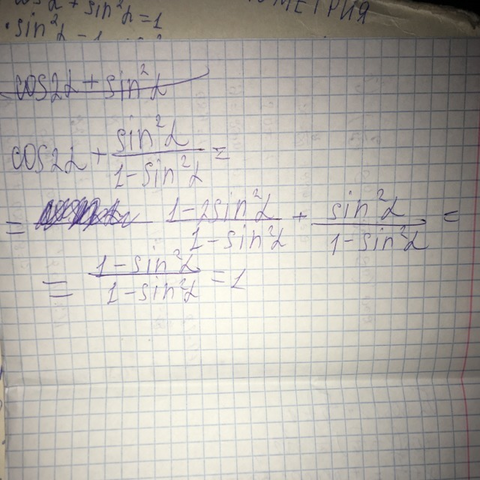 cos²α + sin²α = 1
cos2α + sin²α
cos2α + sin²α / 1 - sin²α =
= 1 - 2sin²α / 1 - sin²α + sin²α / 1 - sin²α =
= 1 - sin²α / 1 - sin²α = 1